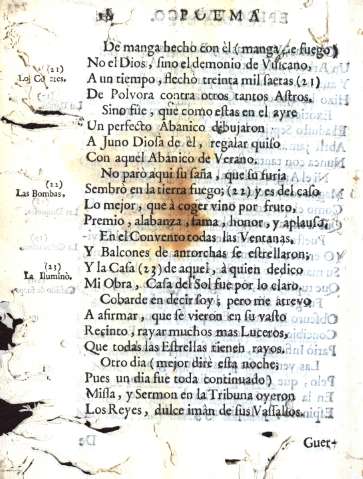 POEMA
De manga hecho con èl (manga de fuego)
No el Dios, sino el demonio de Vulcano,
A un tiempo, flechò treinta mil saetas (21)
De Polvora contra otros tantos Astros.
Sino fue, que como estas en el ayre
Un perfecto Abanico debujaron
A Juno Diosa de èl, regalar quiso
Con aquel Abánico de Verano.
No parò aqui su saña, que su furia
Sembrò en la tierra fuego; (22) y es del caso
Lo mejor, que à coger vino por fruto,
Premio, alabanza, fama, honor, y aplauso.
En el Convento todas las Ventanas,
Y Balcones de antorchas se estrellaron;
Y la Casa (23) de aquel, à quien dedico
Mi Obra, Casa del Sol fue por lo claro.
Cobarde en decir soy; pero me atrevo
A afirmar, que se vieron en su vasto
Recinto, rayar muchos mas Luceros,
Que todas las Estrellas tienen rayos.
Otro dia (mejor dirè esta noche;
Pues un dia fue toda continuado)
Missa, y Sermon en la Tribuna oyeron
Los Reyes, dulce imàn de sus Vassallos.
Guer-
(21)
(22)
Las Bombas.
(23)
La Iluminò.